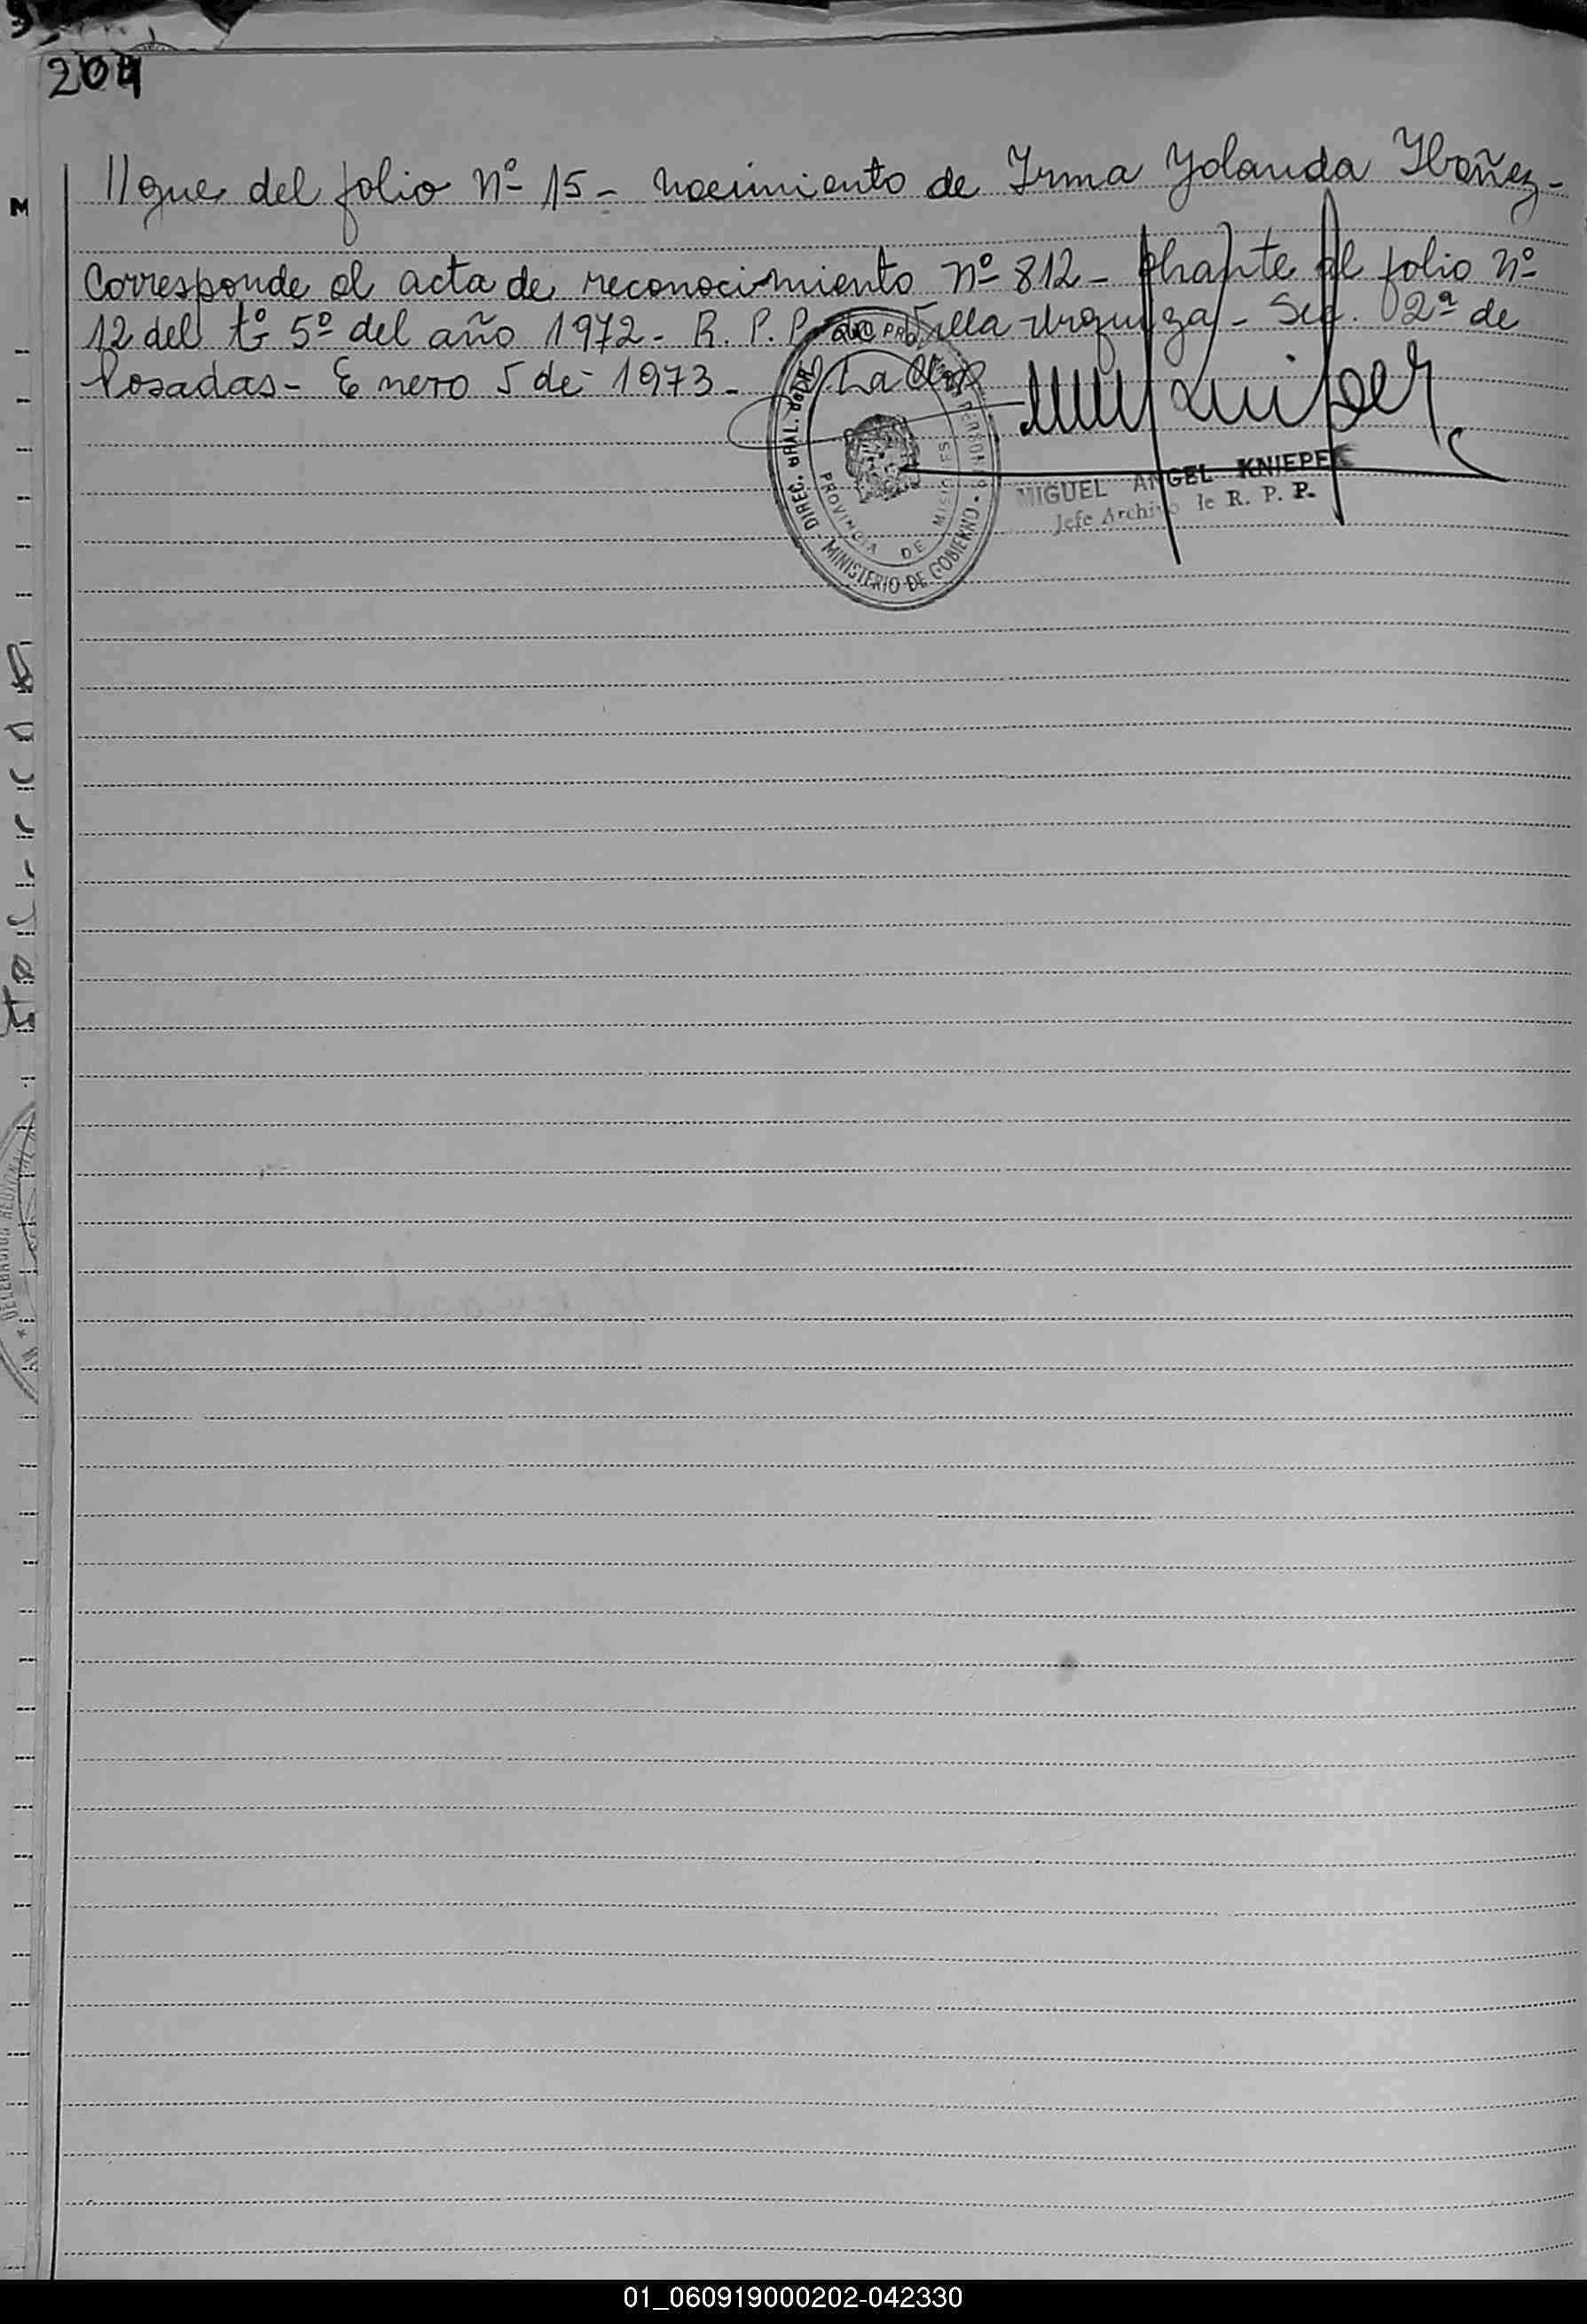 204
//gue del folio Nº 15 - nacimiento de Irma Yolanda Ibañez -
Corresponde al acta de reconocimiento nº 812 - obrante al folio nº
12 del tº 5º del año 1972 - R. P. P. de Villa Urquiza - Sec. 2ª de
Posadas - Enero 5 de 1973 -
DIREC. GRAL. DEL
MINISTERIO DE GOBIERNO
PROVINCIA DE MISIONES
MIGUEL ANGEL KNIEPER
Jefe Archivo de R. P. P.
01_060919000202-042330